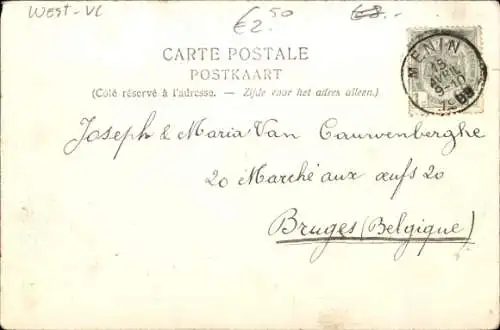 West-Vl
€2.50
€8.-
CARTE POSTALE
POSTKAART
(Côté réservé à l'adresse. — Zijde voor het adres alleen.)
MENIN
Joseph & Maria Van Cauwenberghe
20 Marché aux œufs 20
Bruges (Belgique)